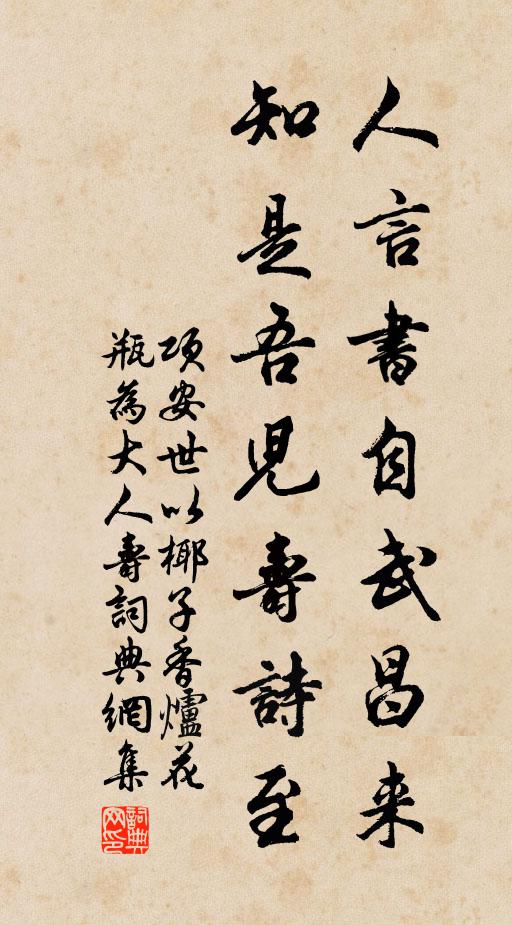 人言書自武昌来
知是吾児壽詩至
项安世以椰子香爐花
瓶為大人壽詞典網集
詞典網印